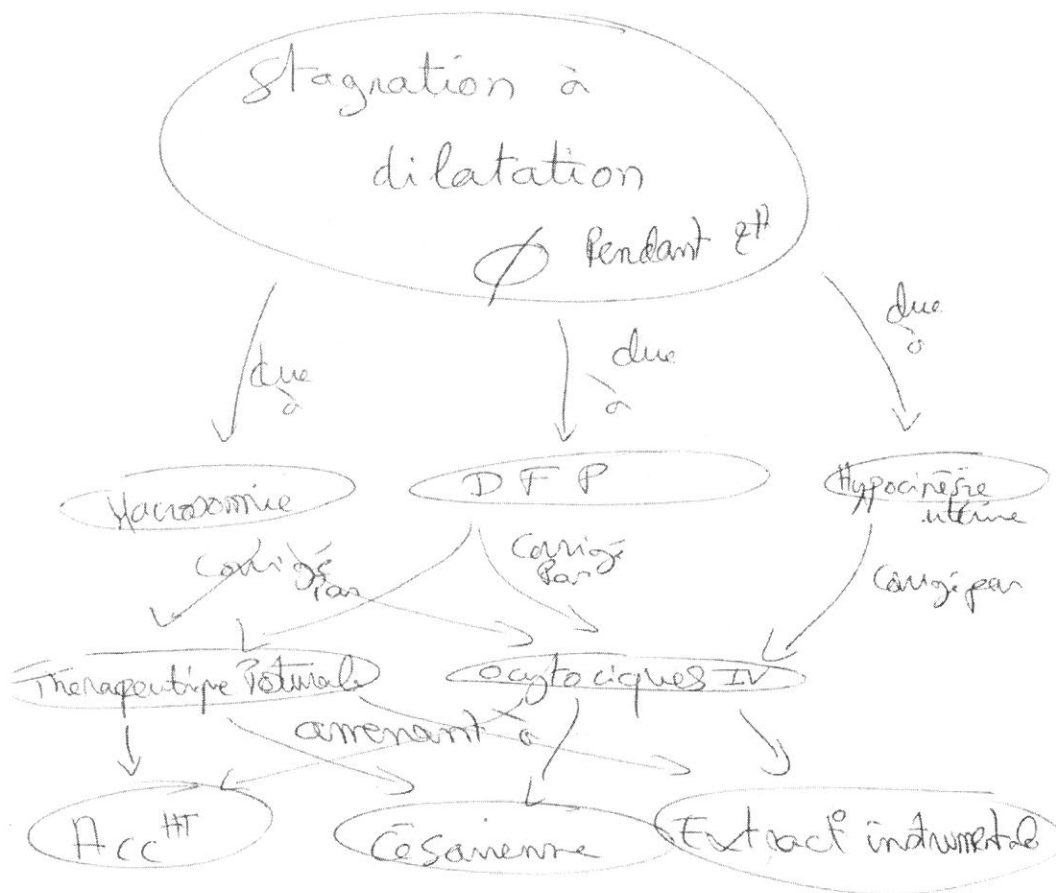 Stagnation à
dilatation
Ø Pendant 2H
due à
due à
due à
Macrosomie
D F P
Hypocinésie utérine
Corrigé Par
Corrigé Par
Corrigé par
Thérapeutique Posturale
Ocytociques IV
amenant à
Acc HT
Césarienne
Extract° instrumentale